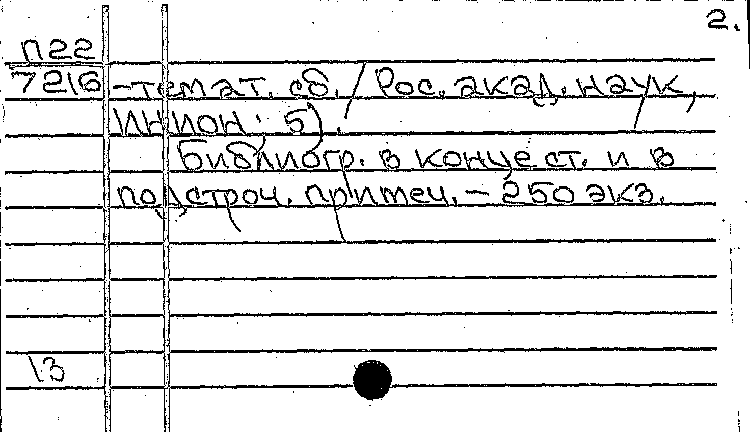 2.
П22
7216 -темат. сб. / Рос. акад. наук,
ИНИОН; 5).
Библиогр. в конце ст. и в
подстроч. примеч. - 250 экз.
13